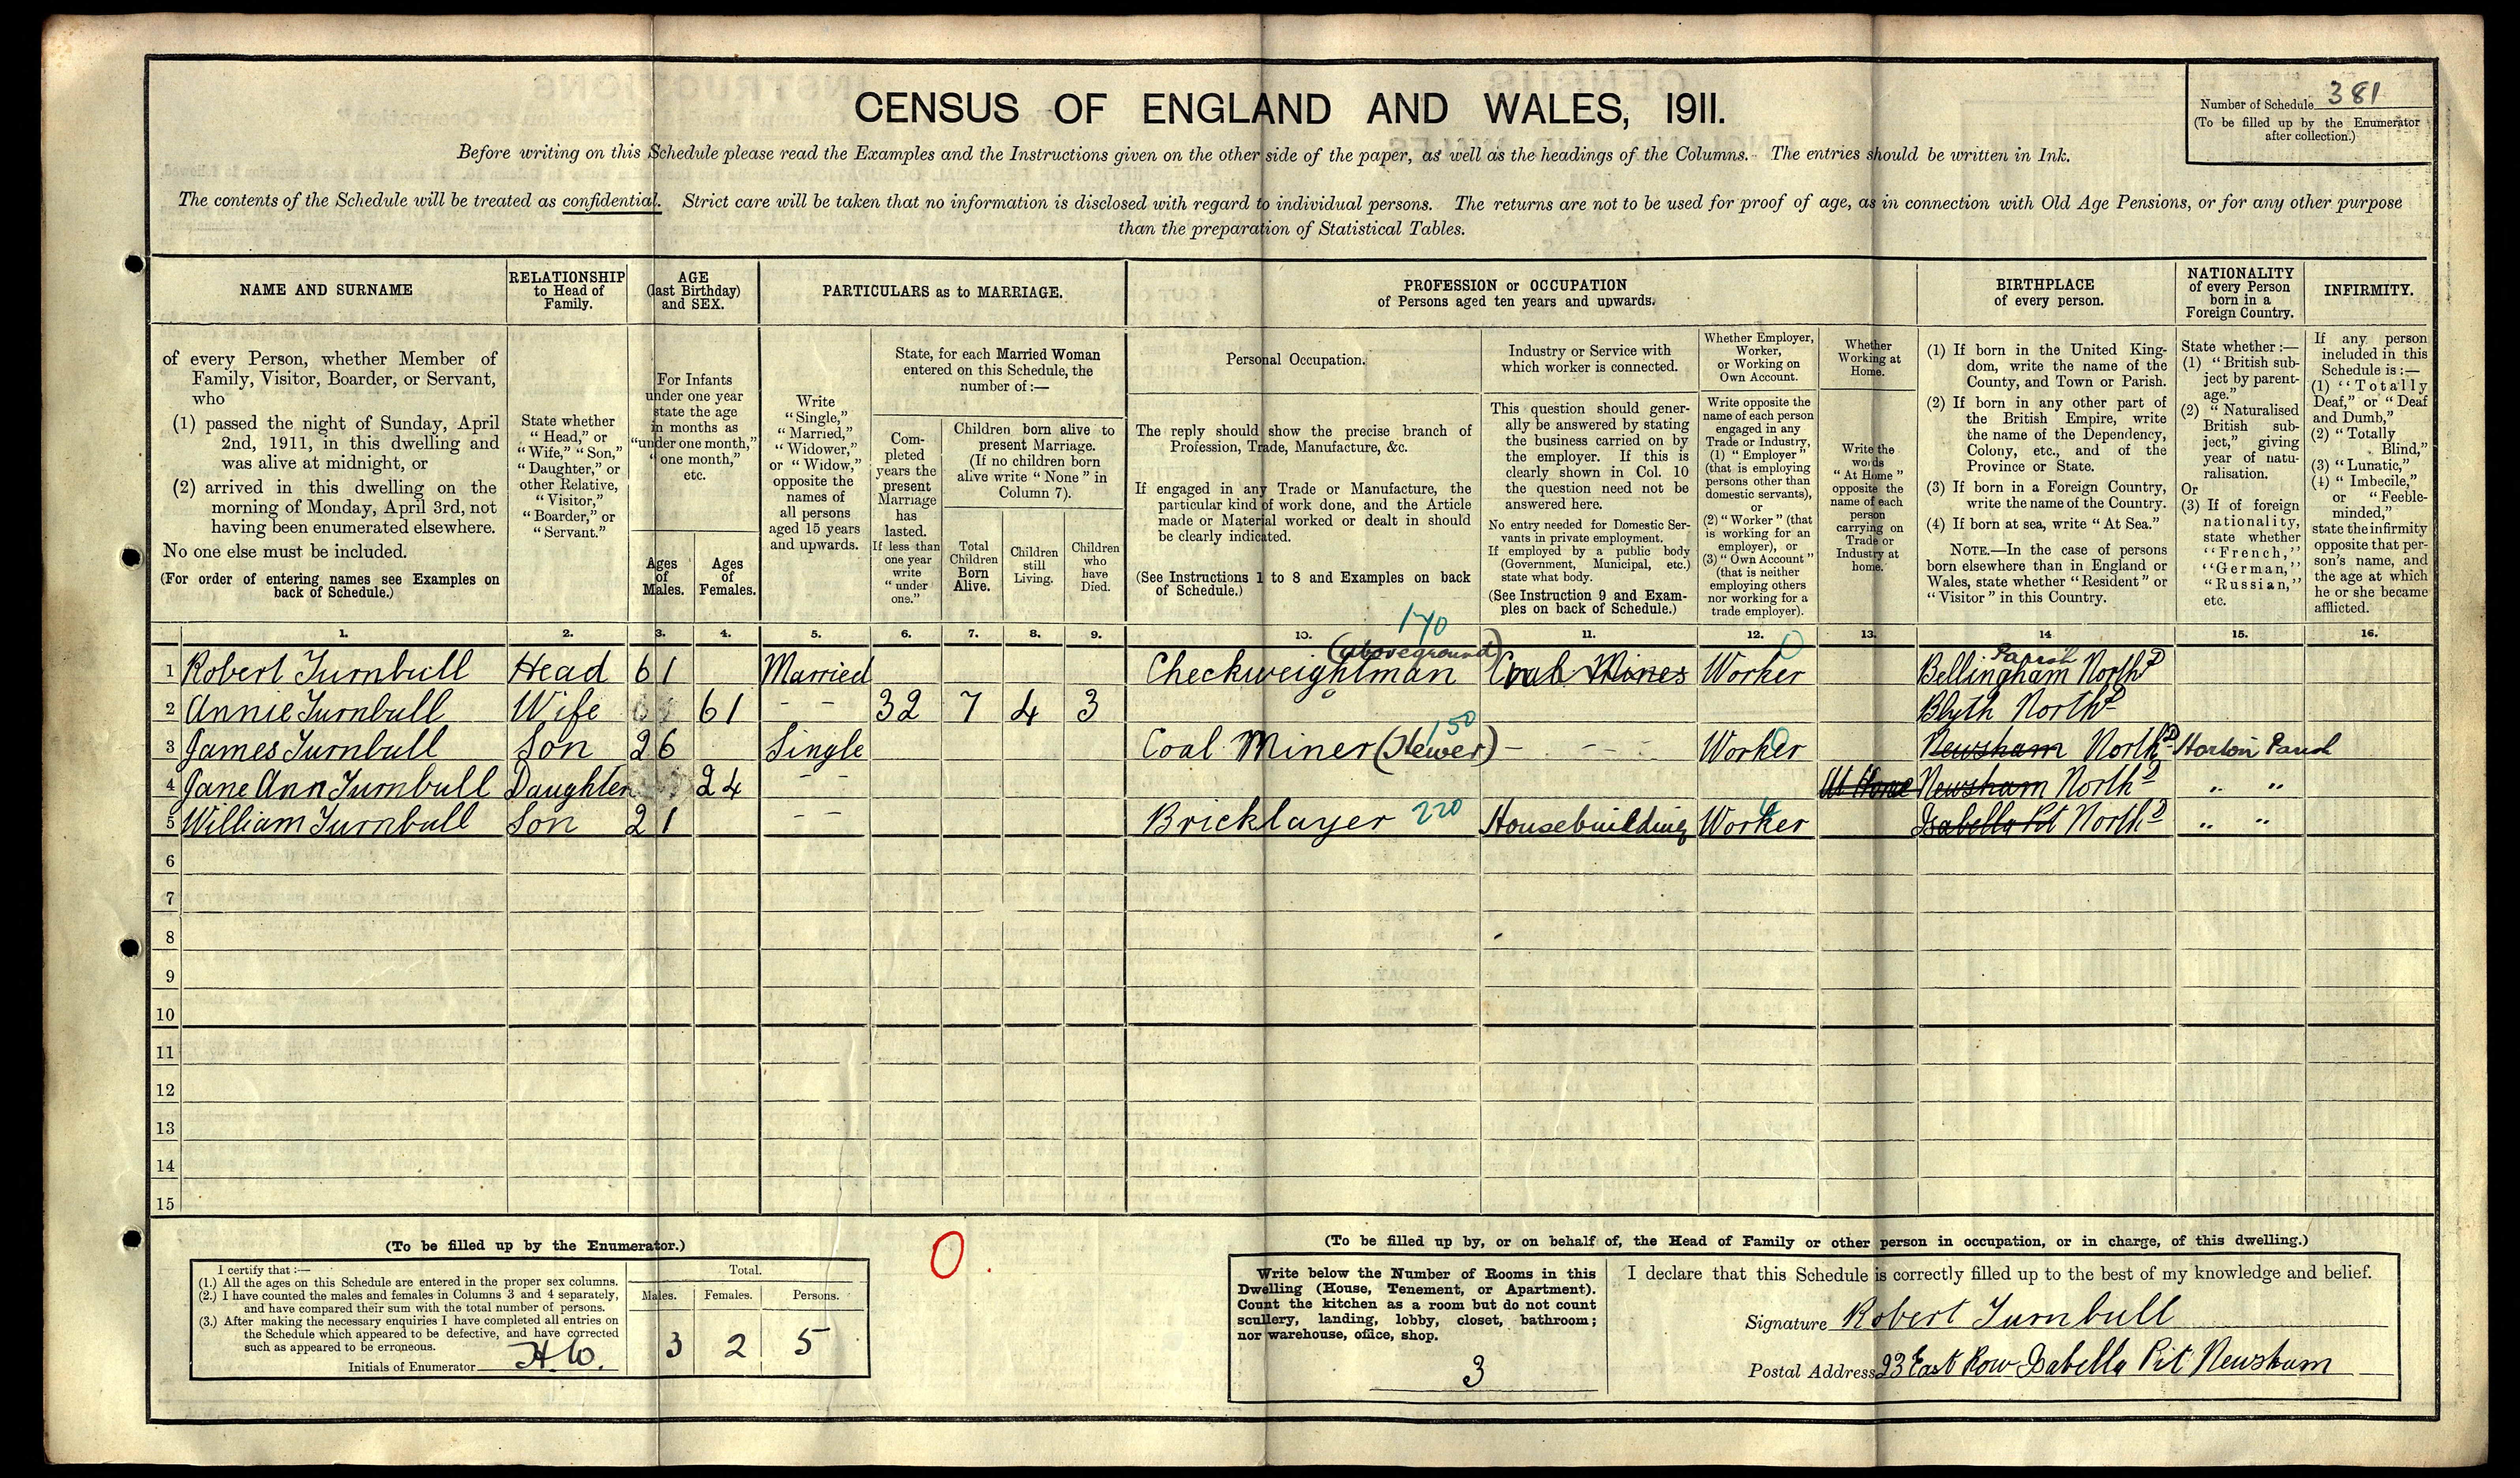 CENSUS OF ENGLAND AND WALES, 1911.
Number of Schedule 381
(To be filled up by the Enumerator
after collection.)
Before writing on this Schedule please read the Examples and the Instructions given on the other side of the paper, as well as the headings of the Columns. The entries should be written in Ink.
The contents of the Schedule will be treated as confidential. Strict care will be taken that no information is disclosed with regard to individual persons. The returns are not to be used for proof of age, as in connection with Old Age Pensions, or for any other purpose
than the preparation of Statistical Tables.
NAME AND SURNAME
of every Person, whether Member of
Family, Visitor, Boarder, or Servant,
who
(1) passed the night of Sunday, April
2nd, 1911, in this dwelling and
was alive at midnight, or
(2) arrived in this dwelling on the
morning of Monday, April 3rd, not
having been enumerated elsewhere.
No one else must be included.
(For order of entering names see Examples on
back of Schedule.)
RELATIONSHIP
to Head of
Family.
State whether
"Head," or
"Wife," "Son,"
"Daughter," or
other Relative,
"Visitor,"
"Boarder," or
"Servant."
AGE
(last Birthday)
and SEX.
For Infants
under one year
state the age
in months as
"under one month,"
"one month,"
etc.
Ages
of
Males.
Ages
of
Females.
PARTICULARS as to MARRIAGE.
Write
"Single,"
"Married,"
"Widower,"
or "Widow,"
opposite the
names of
all persons
aged 15 years
and upwards.
State, for each Married Woman
entered on this Schedule, the
number of:—
Com-
pleted
years the
present
Marriage
has
lasted.
If less than
one year
write
"under
one."
Children born alive to
present Marriage.
(If no children born
alive write "None" in
Column 7).
Total
Children
Born
Alive.
Children
still
Living.
Children
who
have
Died.
PROFESSION or OCCUPATION
of Persons aged ten years and upwards.
Personal Occupation.
The reply should show the precise branch of
Profession, Trade, Manufacture, &c.
If engaged in any Trade or Manufacture, the
particular kind of work done, and the Article
made or Material worked or dealt in should
be clearly indicated.
(See Instructions 1 to 8 and Examples on back
of Schedule.)
Industry or Service with
which worker is connected.
This question should gener-
ally be answered by stating
the business carried on by
the employer. If this is
clearly shown in Col. 10
the question need not be
answered here.
No entry needed for Domestic Ser-
vants in private employment.
If employed by a public body
(Government, Municipal, etc.)
state what body.
(See Instruction 9 and Exam-
ples on back of Schedule.)
Whether Employer,
Worker,
or Working on
Own Account.
Write opposite the
name of each person
engaged in any
Trade or Industry,
(1) "Employer"
(that is employing
persons other than
domestic servants),
or
(2) "Worker" (that
is working for an
employer), or
(3) "Own Account"
(that is neither
employing others
nor working for a
trade employer).
Whether
Working at
Home.
Write the
words
"At Home"
opposite the
name of each
person
carrying on
Trade or
Industry at
home.
BIRTHPLACE
of every person.
(1) If born in the United King-
dom, write the name of the
County, and Town or Parish.
(2) If born in any other part of
the British Empire, write
the name of the Dependency,
Colony, etc., and of the
Province or State.
(3) If born in a Foreign Country,
write the name of the Country.
(4) If born at sea, write "At Sea."
NOTE.—In the case of persons
born elsewhere than in England or
Wales, state whether "Resident" or
"Visitor" in this Country.
NATIONALITY
of every Person
born in a
Foreign Country.
State whether:—
(1) "British sub-
ject by parent-
age."
(2) "Naturalised
British sub-
ject," giving
year of natu-
ralisation.
Or
(3) If of foreign
nationality,
state whether
"French,"
"German,"
"Russian,"
etc.
INFIRMITY.
If any person
included in this
Schedule is:—
(1) "Totally
Deaf," or "Deaf
and Dumb,"
(2) "Totally
Blind,"
(3) "Lunatic,"
(4) "Imbecile,"
or "Feeble-
minded,"
state the infirmity
opposite that per-
son's name, and
the age at which
he or she became
afflicted.
1. 2. 3. 4. 5. 6. 7. 8. 9. 10. 11. 12. 13. 14 15. 16.
170
(aboveground) 0 Parish
1 Robert Turnbull Head 61 Married Checkweighman Coal Mines Worker Bellingham Northd
2 Annie Turnbull Wife 61 - - 32 7 4 3 Blyth Northd
150
3 James Turnbull Son 26 Single Coal Miner (Hewer) - - - - Worker Newsham Northd Horton Parish
4 Jane Ann Turnbull Daughter 24 - - At Home Newsham Northd " "
5 William Turnbull Son 21 - - Bricklayer 220 Housebuilding Worker Isabella Pit Northd " "
6
7
8
9
10
11
12
13
14
15
(To be filled up by the Enumerator.)
I certify that:—
(1.) All the ages on this Schedule are entered in the proper sex columns.
(2.) I have counted the males and females in Columns 3 and 4 separately,
and have compared their sum with the total number of persons.
(3.) After making the necessary enquiries I have completed all entries on
the Schedule which appeared to be defective, and have corrected
such as appeared to be erroneous.
Initials of Enumerator H.W.
Total.
Males. Females. Persons.
3 2 5
0.
(To be filled up by, or on behalf of, the Head of Family or other person in occupation, or in charge, of this dwelling.)
Write below the Number of Rooms in this
Dwelling (House, Tenement, or Apartment).
Count the kitchen as a room but do not count
scullery, landing, lobby, closet, bathroom;
nor warehouse, office, shop.
3
I declare that this Schedule is correctly filled up to the best of my knowledge and belief.
Signature Robert Turnbull
Postal Address 23 East Row Isabella Pit Newsham